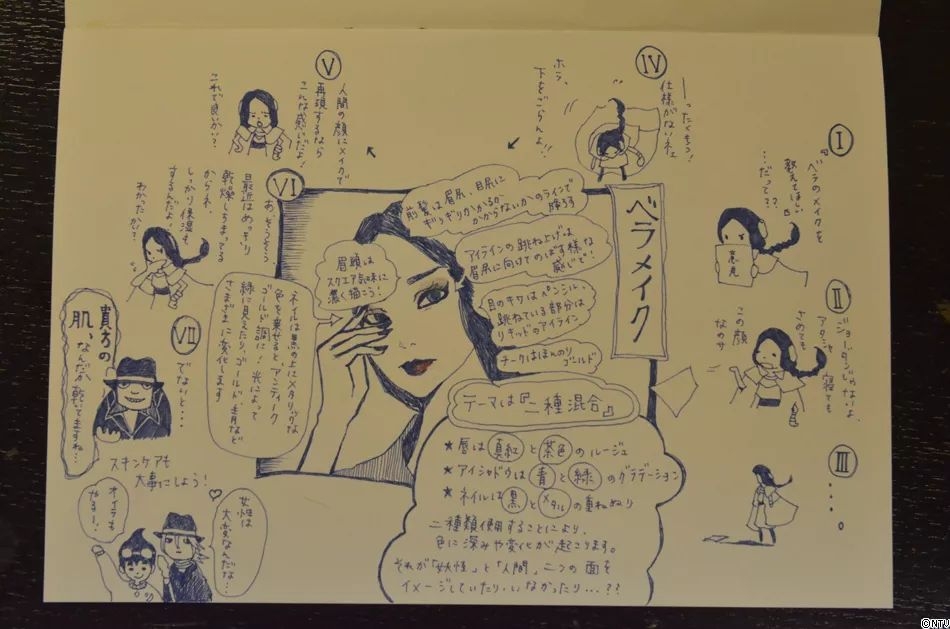 I
『ベラのメイクを
教えてほしい』
…だって？？
意見
II
ジョーダンじゃないよ
アタシャ寝ても
さめても
この顔
なのサ
III
IV
ーったくもう！
仕様がないネェ
ホラ、
下をごらんよ！！
V
人間の顔にメイクで
再現するなら
こんな感じだよ！
これで良いかい？
ベラメイク
前髪は眉尻、目尻に
ギリギリかかるか
かからないかのラインで
降ろす
アイラインの跳ね上げは
眉尻に向けてのばす様な
感じで！
目のキワはペンシル、
跳ねている部分は
リキッドのアイライン
チークはほんのり
ゴールド
眉頭は
スクエア気味に
濃く描こう！
ネイルは黒の上にメタリックな
色を乗せると、アンティーク
ゴールド調に！光によって
緑に見えたり、ゴールド、青など
さまざまに変化します
テーマは『二種混合』
★唇は真紅と茶色のルージュ
★アイシャドウは青と緑のグラデーション
★ネイルは黒とメタルの重ねぬり
二種類使用することにより、
色に深みや変化が起こります。
それが「妖怪」と「人間」二つの面を
イメージしていたり・いなかったり…??
VI
あ、そうそう
最近はめっきり
乾燥しちまってる
からネ、
しっかり保湿も
するんだよ！
わかったか？
VII
でないと…
貴方の
肌、なんだか乾いてますね…
スキンケアも
大事にしよう！
女性は
大変なんだな…
オイラも
やるー！
©NTV